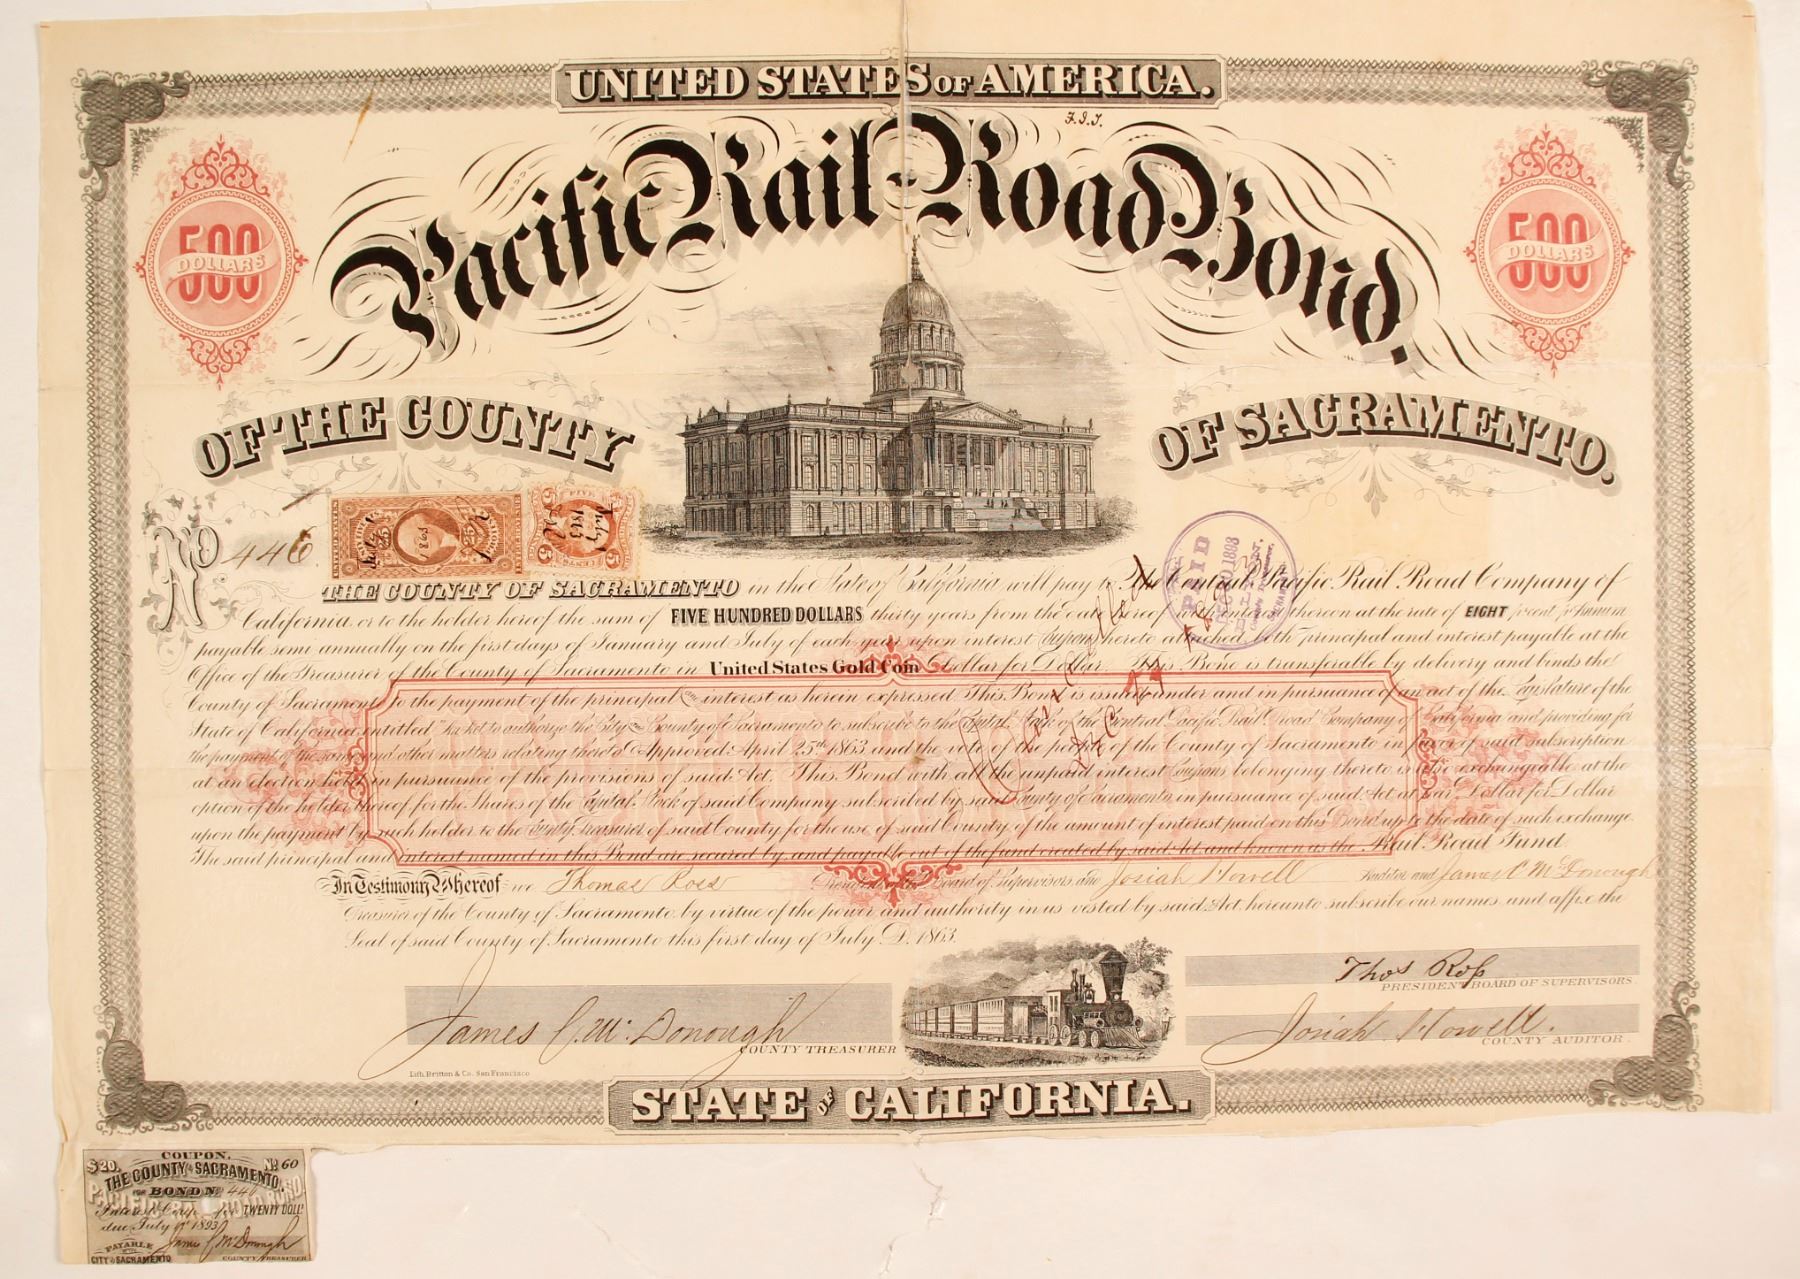 UNITED STATES OF AMERICA.
F.I.T.
Pacific Rail-Road Bond.
500 DOLLARS
500 DOLLARS
OF THE COUNTY
OF SACRAMENTO.
No 446
25
FIVE
5 CENTS 5
July 1 1863
PAID
THE COUNTY OF SACRAMENTO in the State of California will pay to the Central Pacific Rail Road Company of
California or to the holder hereof the sum of FIVE HUNDRED DOLLARS thirty years from the date hereof with interest thereon at the rate of EIGHT per cent per annum
payable semi annually on the first days of January and July of each year upon interest Coupons hereto attached both principal and interest payable at the
Office of the Treasurer of the County of Sacramento in United States Gold Coin Dollar for Dollar. This Bond is transferable by delivery and binds the
County of Sacramento to the payment of the principal and interest as herein expressed. This Bond is issued under and in pursuance of an act of the Legislature of the
State of California entitled "An Act to authorize the City and County of Sacramento to subscribe to the Capital Stock of the Central Pacific Rail Road Company of California and providing for
the payment of the same and other matters relating thereto" Approved April 25th 1863 and the vote of the people of the County of Sacramento in favor of said subscription
at an election held in pursuance of the provisions of said Act. This Bond with all the unpaid interest Coupons belonging thereto is also exchangeable at the
option of the holder thereof for the Shares of the Capital Stock of said Company subscribed by said County of Sacramento in pursuance of said Act at par Dollar for Dollar
upon the payment by such holder to the County Treasurer of said County for the use of said County of the amount of interest paid on this Bond up to the date of such exchange.
The said principal and interest named in this Bond are secured by and payable out of the fund created by said Act and known as the Rail Road Fund.
In Testimony Whereof we Thomas Ross President of the Board of Supervisors and Josiah Howell Auditor and James C McDonough
Treasurer of the County of Sacramento by virtue of the power and authority in us vested by said Act hereunto subscribe our names and affix the
Seal of said County of Sacramento this first day of July A.D. 1863.
Thos Ross
PRESIDENT BOARD OF SUPERVISORS
James C. McDonough
COUNTY TREASURER
Josiah Howell.
COUNTY AUDITOR.
Lith. Britton & Co. San Francisco
STATE OF CALIFORNIA.
COUPON.
$20. No 60
THE COUNTY OF SACRAMENTO,
FOR BOND No 446
PACIFIC RAIL ROAD BOND
Interest Coupon for TWENTY DOLLS
due July 1st 1893
PAYABLE
CITY OF SACRAMENTO
James C McDonough
COUNTY TREASURER